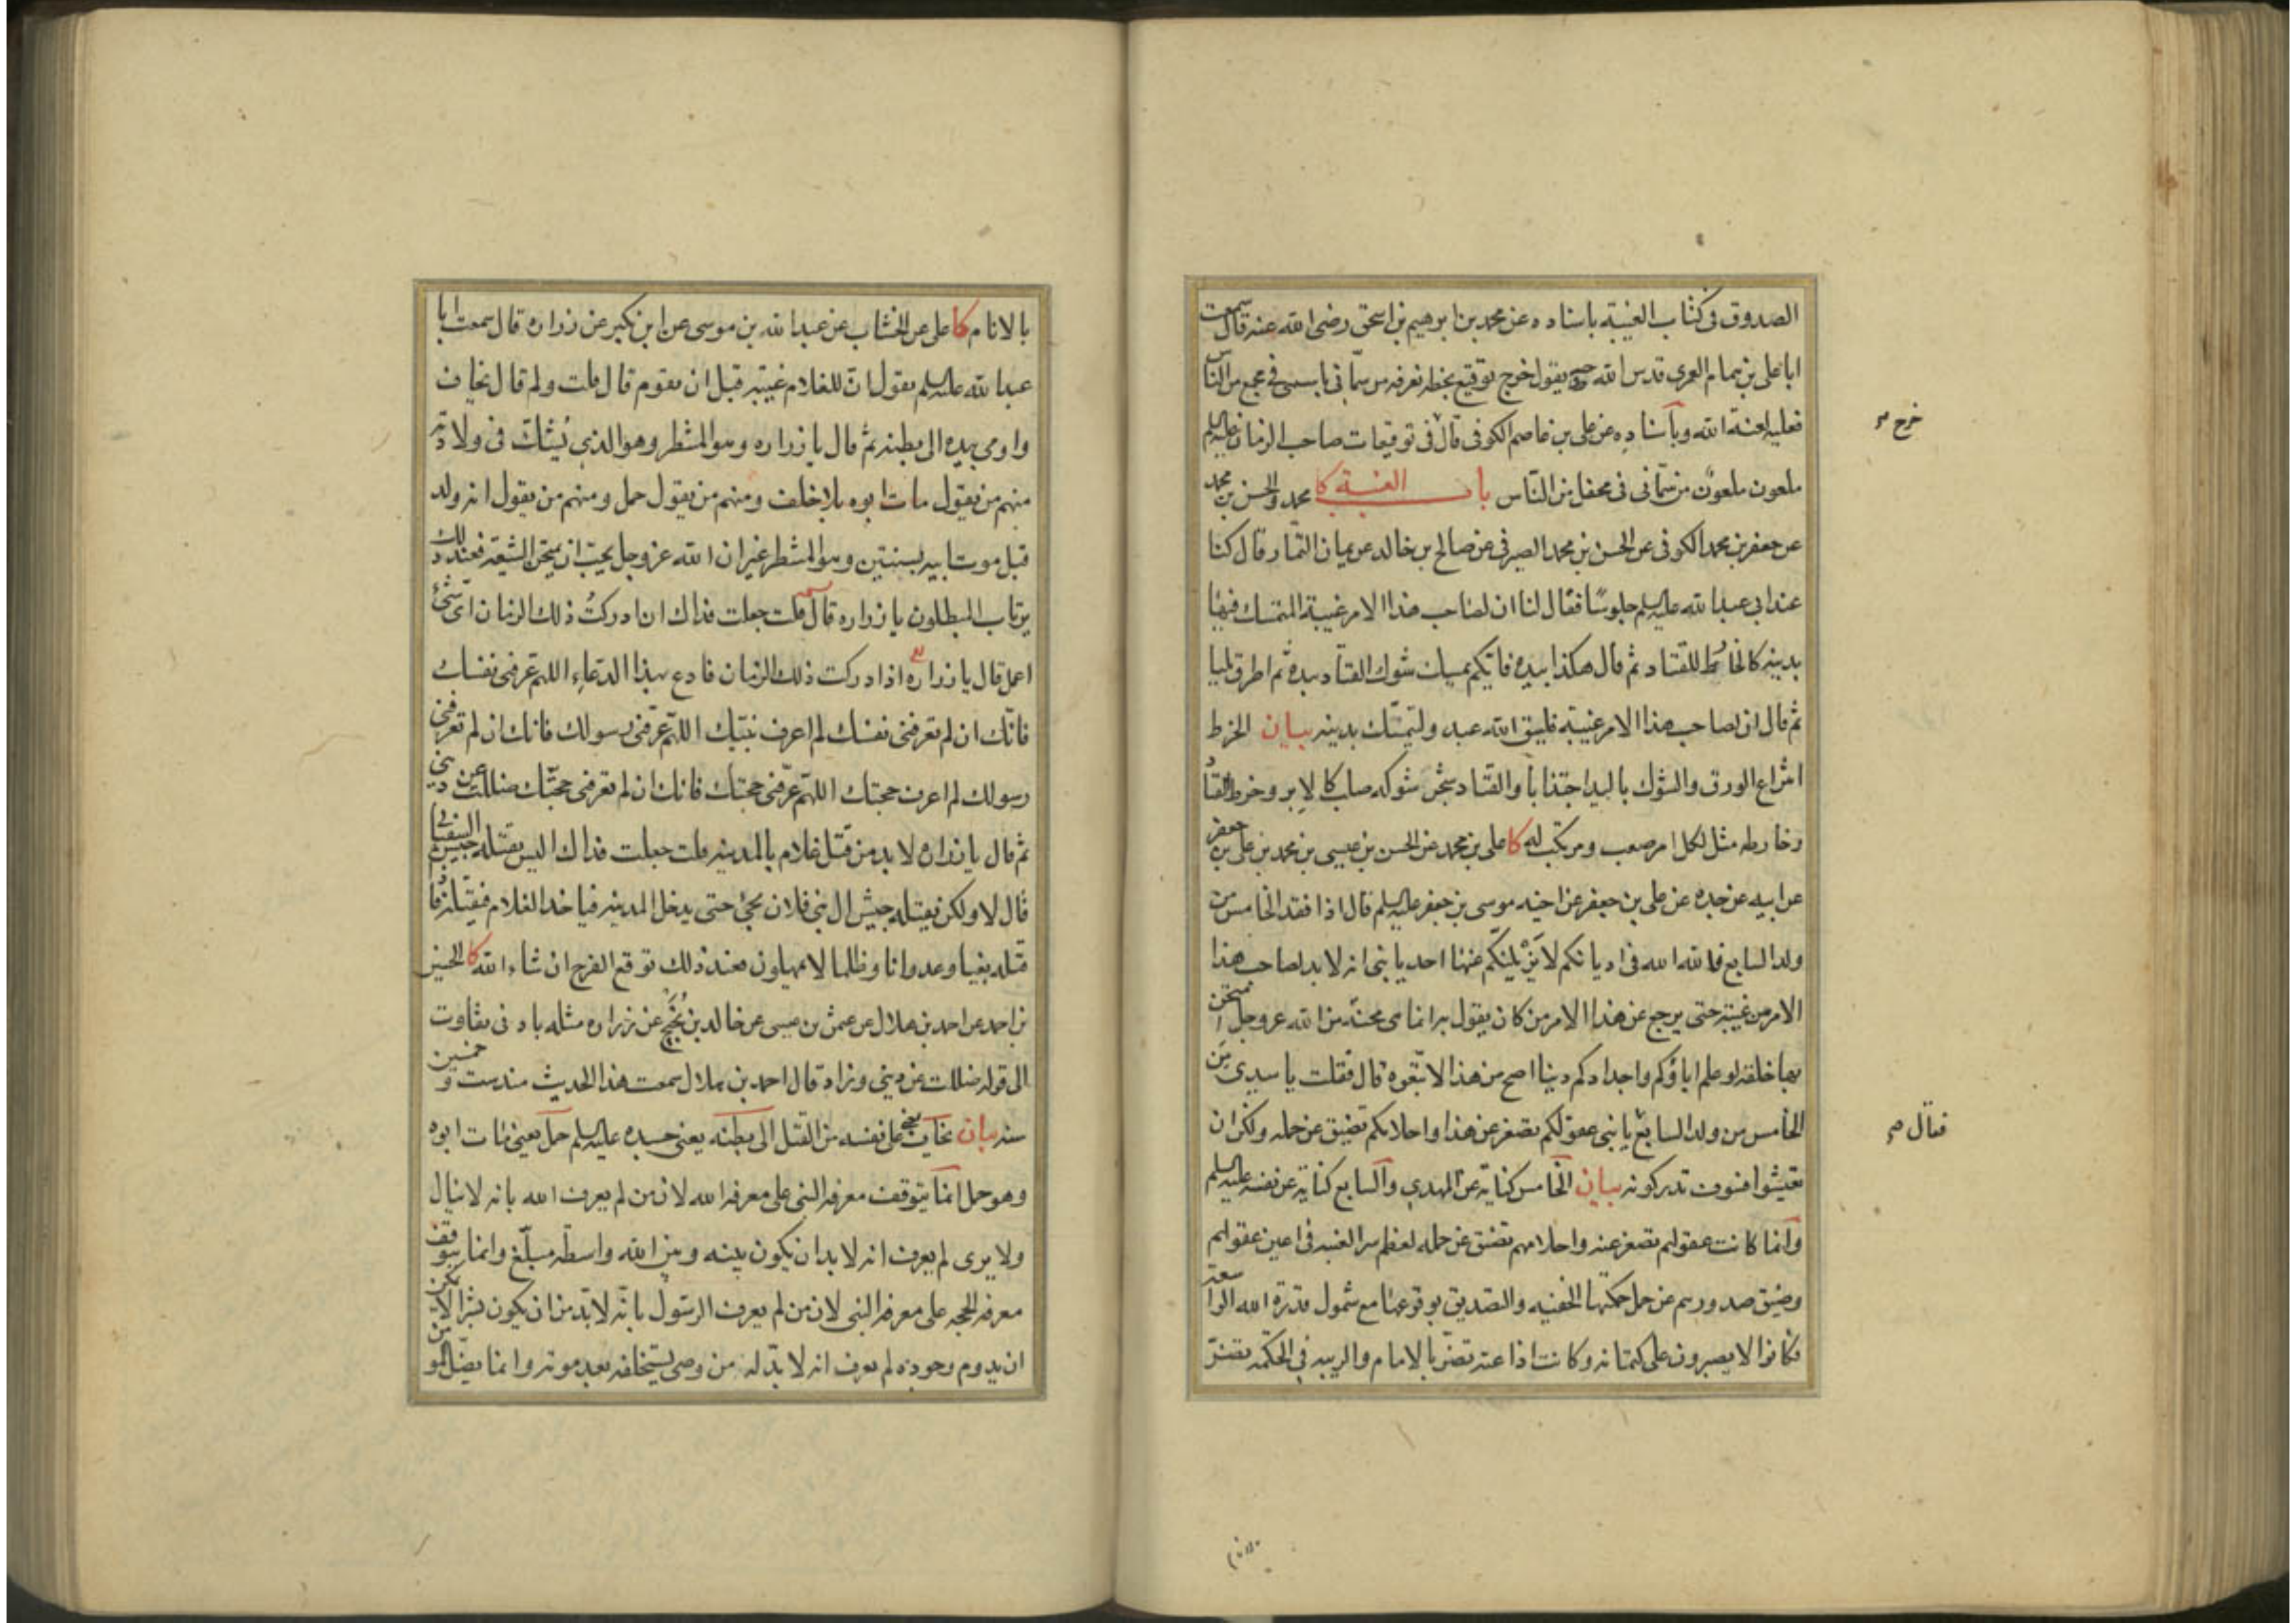 الصدوق فى كتاب الغيبة باسناده عن محمد بن ابرهيم بن اسحق رضى الله عنه قال سمعت
ابا على بن همام العمرى قدس الله يقول خرج توقيع بخطه نعرفه من سمّانى باسمى فى مجمع من الناس
فعليه لعنة الله وباسناده عن على بن عاصم الكوفى قال فى توقيعات صاحب الزمان عليه السلم
خرج
ملعون ملعون من سمّانى فى محفل من النّاس باب الغيبة كا محمد والحسن بن محمد
عن جعفر بن محمد الكوفى عن الحسن بن محمد الصيرفى عن صالح بن خالد عن يمان التمّار قال كنا
عند ابى عبد الله عليه السلم جلوسًا فقال لنا ان لصاحب هذا الامر غيبة المتمسك فيها
بدينه كالخارط للقتاد ثم قال هكذا بيده فايّكم يمسك شوك القتاد بيده ثم اطرق مليا
ثم قال ان لصاحب هذا الامر غيبة فليتق الله عبد وليتمسّك بدينه بيان الخرط
انتزاع الورق والشوك باليد اجتذابا والقتاد شجر شوكه صلب كالابر وخرط القتاد
وخارطه مثل لكل امر صعب ومرتكب له كا على بن محمد عن الحسن بن عيسى بن محمد بن على بن جعفر
عن ابيه عن جده عن على بن جعفر عن اخيه موسى بن جعفر عليه السلم قال اذا فقد الخامس من
ولد السابع فالله الله فى اديانكم لا يزيلنكم عنها احد يا بنى انه لا بد لصاحب هذا
الامر من غيبة حتى يرجع عن هذا الامر من كان يقول به انما هى محنة من الله عز وجل امتحن
بها خلقه لو علم اباؤكم واجدادكم دينا اصح من هذا لاتبعوه قال فقلت يا سيدى من
الخامس من ولد السابع يا بنى عقولكم تصغر عن هذا واحلامكم تضيق عن حمله ولكن ان
فقال
تعيشوا فسوف تدركونه بيان الخامس كناية عن المهدي والسابع كناية عن نفسه عليه السلم
وانما كانت عقولهم تصغر عنه واحلامهم تضيق عن حمله لعظم سر الغيبة فى اعين عقولهم
وضيق صدورهم عن حمل حكمتها الخفيه والتصديق بوقوعها مع شمول قدرة الله الواسعة
فكانوا لا يصبرون على كتمانه وكانت اذاعته تضرّ بالامام والريبه فى الحكمه تضرّ
بالانام كا على عن الخشاب عن عبد الله بن موسى عن ابن بكير عن زراره قال سمعت ابا
عبد الله عليه السلم يقول انّ للغلام غيبة قبل ان يقوم قال قلت ولم قال يخاف
واومى بيده الى بطنه ثم قال يا زراره وهو المنتظر وهو الذي يُشكّ فى ولادته
منهم من يقول مات ابوه بلا خلف ومنهم من يقول حمل ومنهم من يقول انه ولد
قبل موت ابيه بسنتين وهو المنتظر غير ان الله عز وجل يحب ان يمتحن الشيعة فعند ذلك
يرتاب المبطلون يا زراره قال قلت جعلت فداك ان ادركتُ ذلك الزمان اى شىء
اعمل قال يا زراره اذا ادركت ذلك الزمان فادع بهذا الدعاء اللهم عرفنى نفسك
فانّك ان لم تعرفنى نفسك لم اعرف نبيّك اللهم عرّفنى رسولك فانك ان لم تعرفنى
رسولك لم اعرف حجتك اللهم عرّفنى حجتك فانك ان لم تعرفنى حجّتك ضللت عن دينى
ثم قال يا زراره لا بد من قتل غلام بالمدينه قلت جعلت فداك اليس يقتله جيش السفيانى
قال لا ولكن يقتله جيش ال بنى فلان يجئ حتى يدخل المدينه فياخذ الغلام فيقتله فاذا
قتله بغيا وعدوانا وظلما لا يمهلون فعند ذلك توقع الفرج ان شاء الله كا الحسين
بن احمد عن احمد بن هلال عن عثمن بن عيسى عن خالد بن نُجَيح عن زراره مثله بادنى تفاوت
الى قوله ضللت عن دينى وزاد قال احمد بن هلال سمعت هذا الحديث منذ ست وخمسين
سنه بيان يخاف يعنى على نفسه من القتل الى بطنه يعنى جسده عليه السلم حمل يعنى مات ابوه
وهو حمل انما يتوقف معرفة النبى على معرفة الله لان من لم يعرف الله بانه لا ينال
ولا يرى لم يعرف انه لا بد ان يكون بينه وبين الله واسطه مبلّغ وانما يتوقف
معرفه الحجه على معرفه النبى لان من لم يعرف الرسول بانّه لا بدّ من ان يكون بشرا لا يمكن
ان يدوم وجوده لم يعرف انه لا بدّ له من وصى يستخلفه بعد موته وانما يضلّ المو من